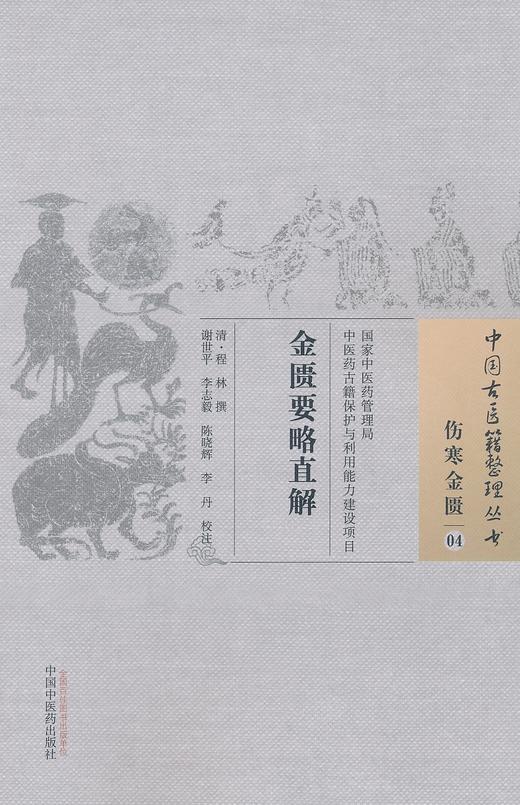 中国古医籍整理丛书
伤寒金匮
04
国家中医药管理局
中医药古籍保护与利用能力建设项目
金匮要略直解
清·程 林 撰
谢世平 李志毅 陈晓辉 李 丹 校注
全国百佳图书出版单位
中国中医药出版社